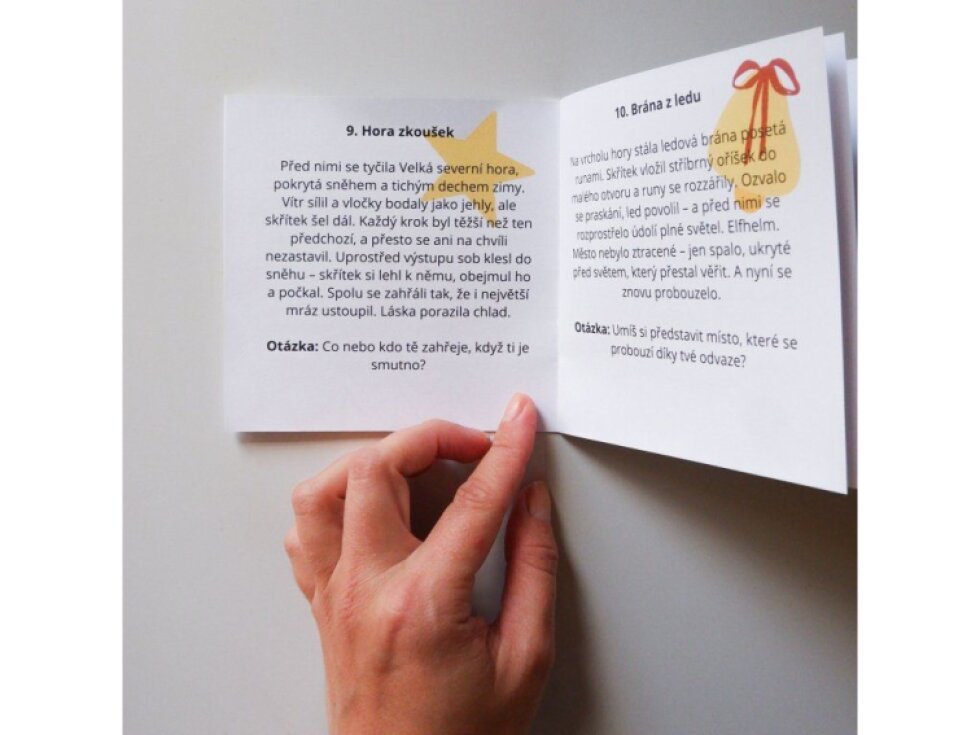 9. Hora zkoušek
Před nimi se tyčila Velká severní hora,
pokrytá sněhem a tichým dechem zimy.
Vítr sílil a vločky bodaly jako jehly, ale
skřítek šel dál. Každý krok byl těžší než ten
předchozí, a přesto se ani na chvíli
nezastavil. Uprostřed výstupu sob klesl do
sněhu – skřítek si lehl k němu, obejmul ho
a počkal. Spolu se zahřáli tak, že i největší
mráz ustoupil. Láska porazila chlad.
Otázka: Co nebo kdo tě zahřeje, když ti je
smutno?
10. Brána z ledu
Na vrcholu hory stála ledová brána posetá
runami. Skřítek vložil stříbrný oříšek do
malého otvoru a runy se rozzářily. Ozvalo
se praskání, led povolil – a před nimi se
rozprostřelo údolí plné světel. Elfhelm.
Město nebylo ztracené – jen spalo, ukryté
před světem, který přestal věřit. A nyní se
znovu probouzelo.
Otázka: Umíš si představit místo, které se
probouzí díky tvé odvaze?